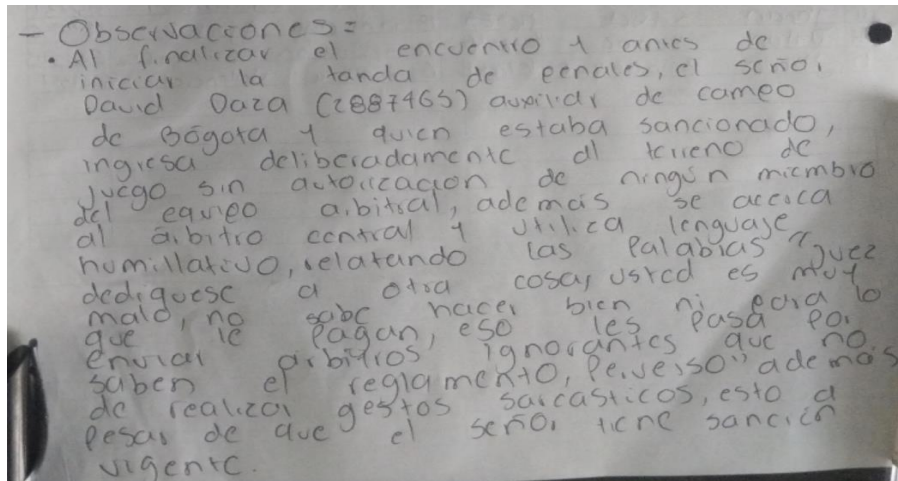 - Observaciones:
• Al finalizar el encuentro y antes de
iniciar la tanda de penales, el señor
David Daza (2887465) auxiliar de campo
de Bogota y quien estaba sancionado,
ingresa deliberadamente al terreno de
juego sin autorizacion de ningún miembro
del equipo arbitral, ademais se acerca
al árbitro central y utiliza lenguaje
humillativo, relatando las palabras "Juez
dediquese a otra cosa, usted es muy
malo, no sabe hacer bien ni para lo
que le pagan, eso les pasa por
enviar arbitros ignorantes que no
saben el reglamento, Perverso" ademas
de realizar gestos sarcasticos, esto a
pesar de que el señor tiene sanción
vigente.